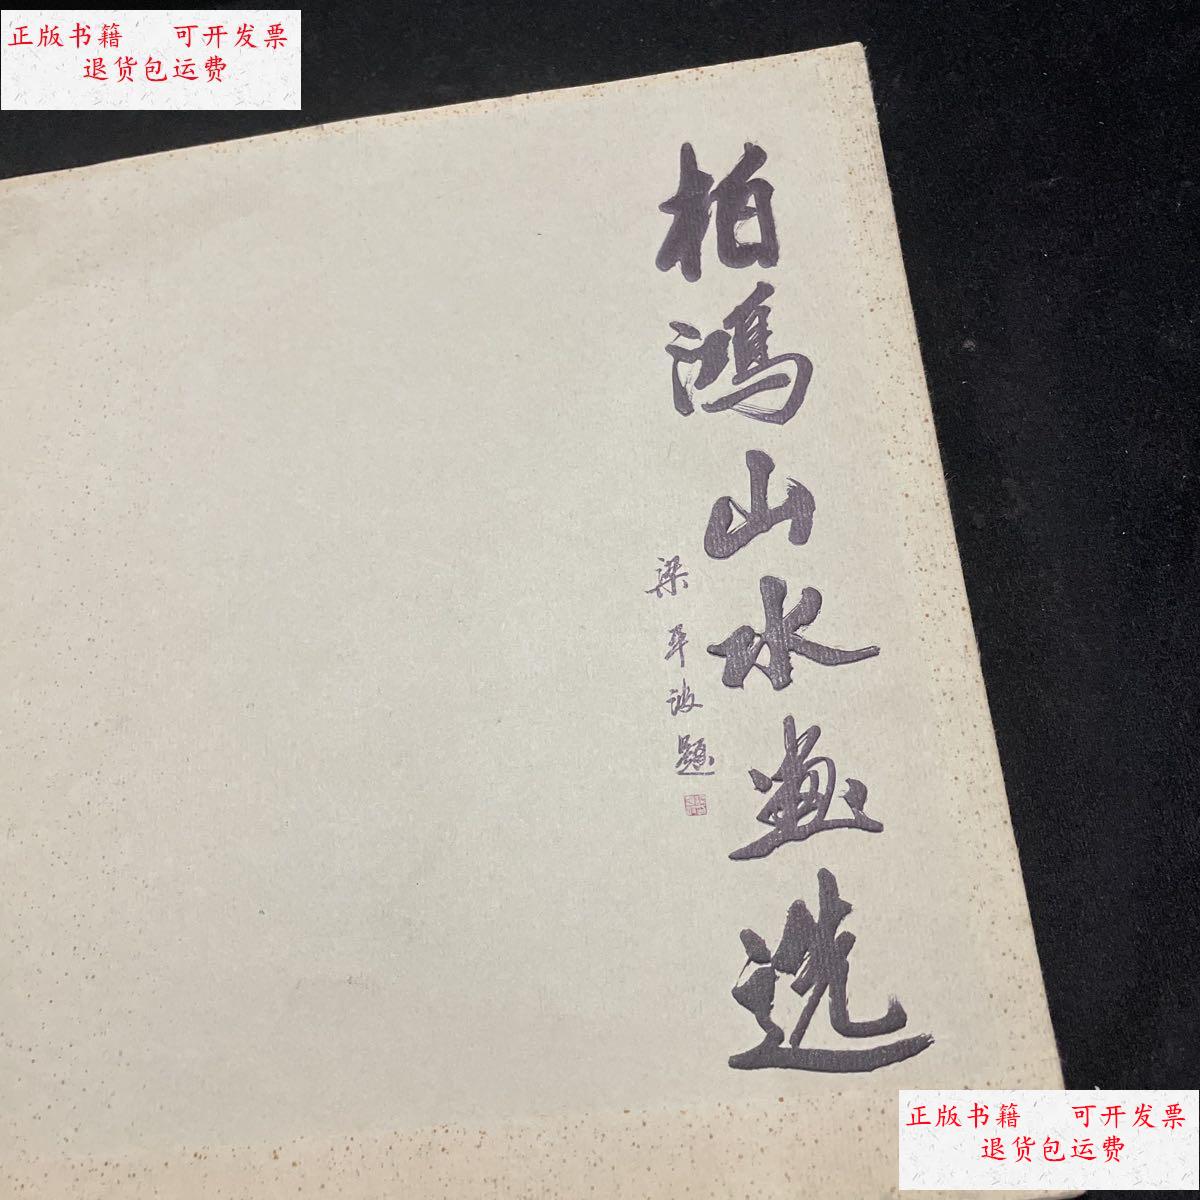 正版书籍 可开发票
退货包运费
柏鸿山水画选
梁平波题
正版书籍 可开发票
退货包运费